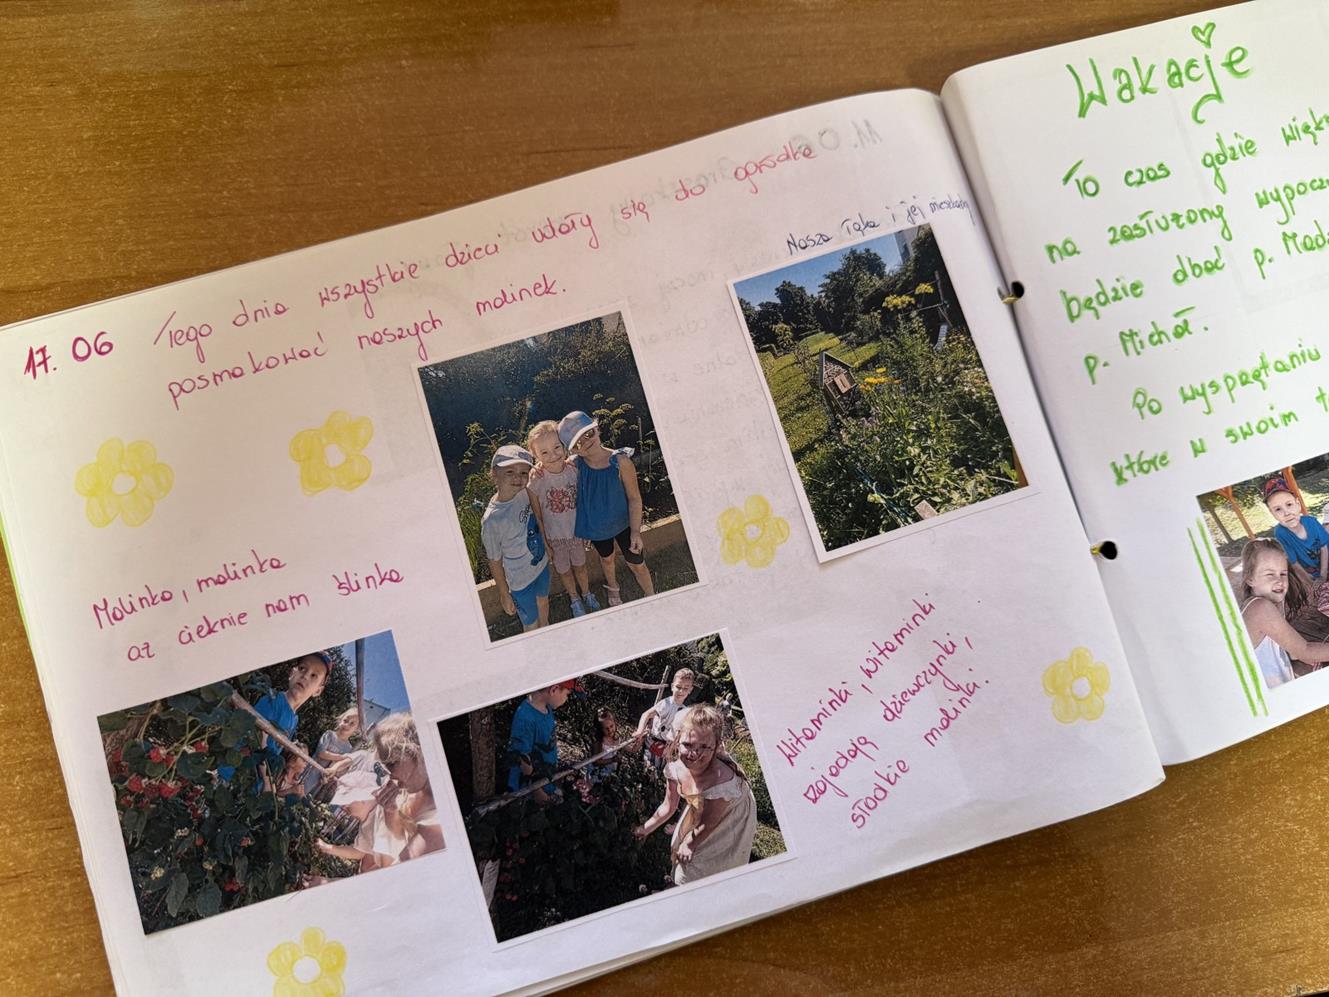 17.06 Tego dnia wszystkie dzieci udały się do ogródka
posmakować naszych malinek.
Nasza łąka i jej mieszkańcy
Malinka, malinka
aż cieknie nam ślinka
Witaminki, witaminki
zajadają dziewczynki,
słodkie malinki.
Wakacje
To czas gdzie
na zasłużony
będzie dbać p.
p. Michał.
Po wysprzątaniu
które w swoim